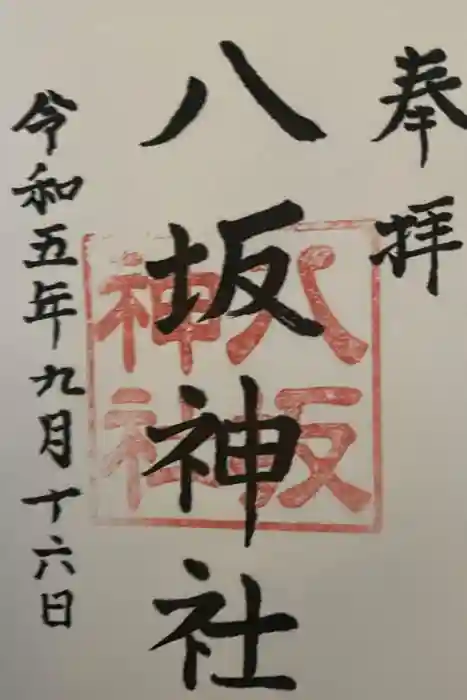 奉拝
八坂神社
八坂
神社
令和五年九月十六日